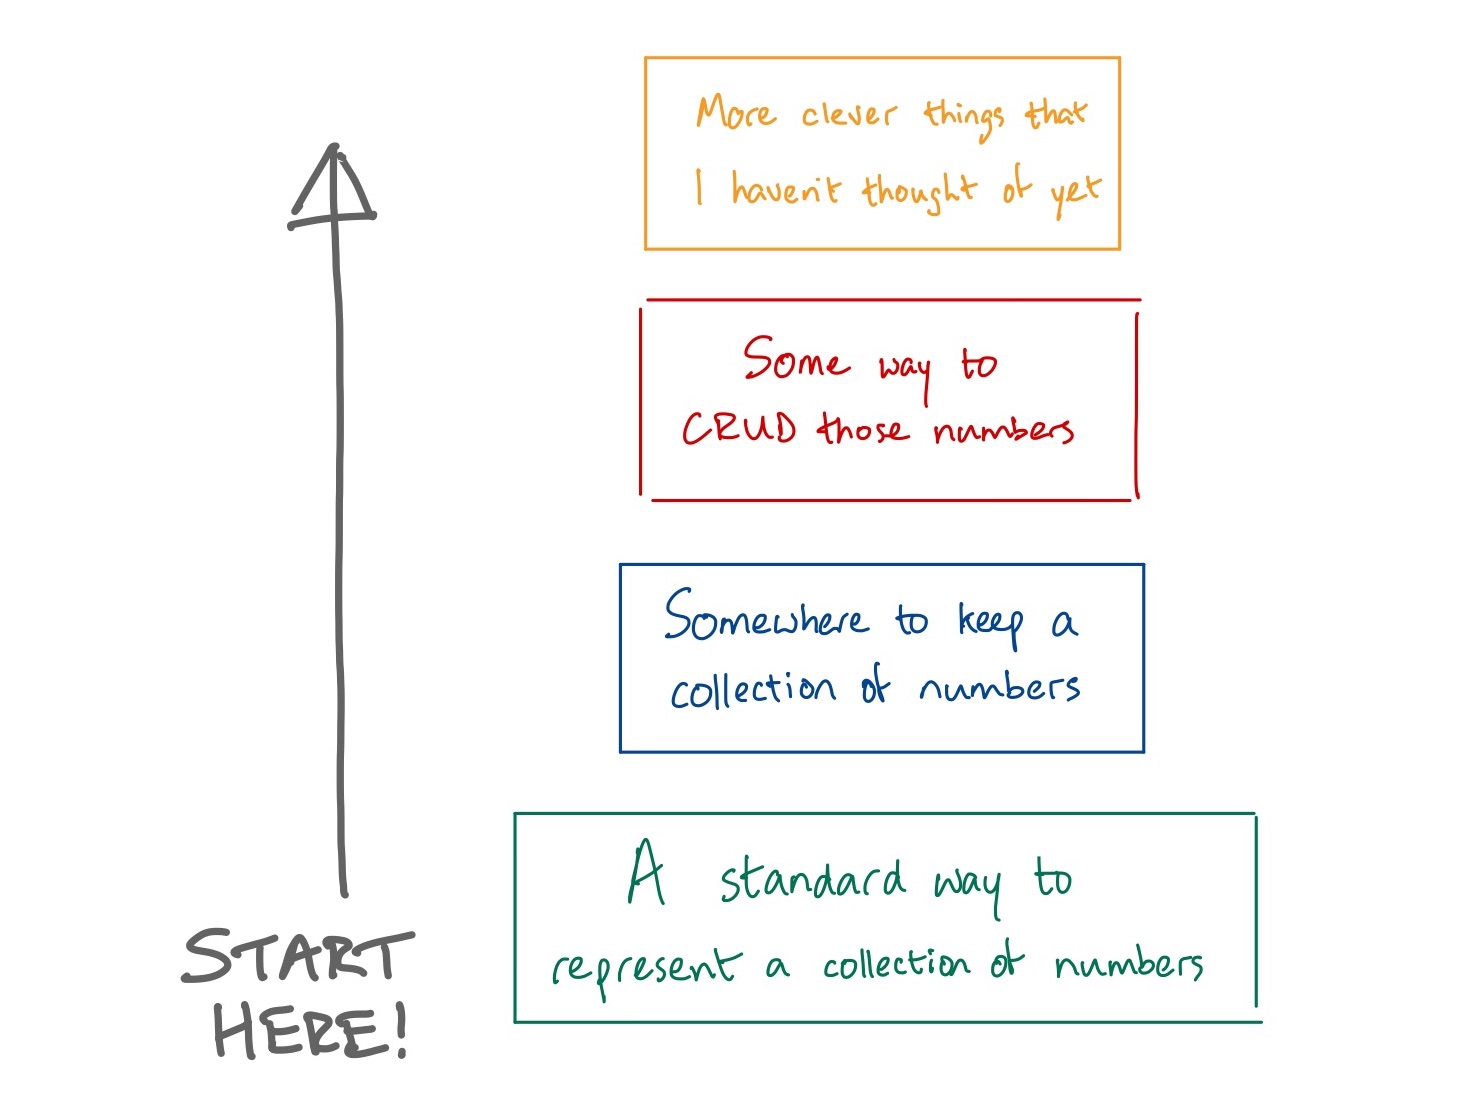 More clever things that
I haven't thought of yet
Some way to
CRUD those numbers
Somewhere to keep a
collection of numbers
A standard way to
represent a collection of numbers
START
HERE!